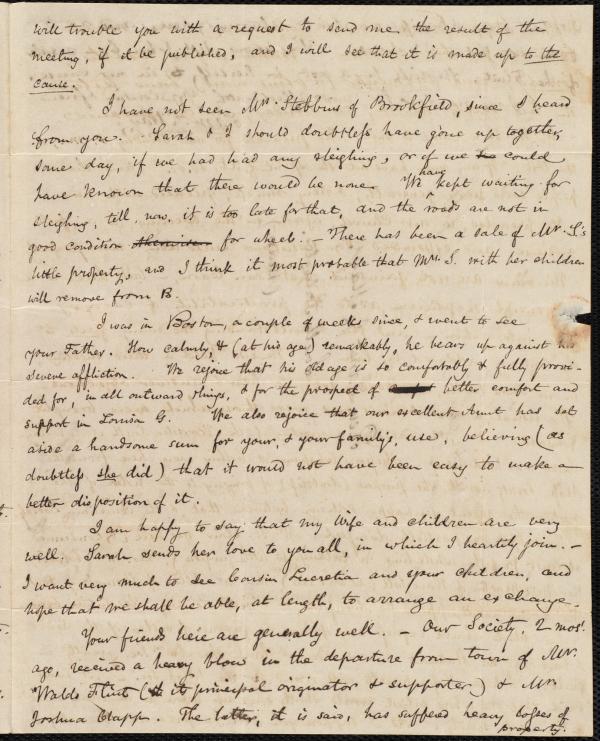 will trouble you with a request to send me the result of the
meeting, if it be published, and I will see that it is made up to the
cause.
I have not seen Mrs. Stebbins of Brookfield, since I heard
from you. Sarah & I should doubtless have gone up together,
some day, if we had had any sleighing, or if we could
have known that there would be none. We have kept waiting for
sleighing, till, now, it is too late for that, and the roads are not in
good condition otherwise for wheels. – There has been a sale of Mr. S's
little property, and I think it most probable that Mrs. S. with her children
will remove from B.
I was in Boston, a couple of weeks since, & went to see
your Father. How calmly, & (at his age) remarkably, he bears up against his
severe affliction. We rejoice that his old age is so comfortably & fully provi-
ded for, in all outward things, & for the prospect of better comfort and
support in Louisa G. We also rejoice that our excellent Aunt has set
aside a handsome sum for your, & your family's, use, believing (as
doubtless she did) that it would not have been easy to make a
better disposition of it.
I am happy to say that my Wife and children are very
well. Sarah sends her love to you all, in which I heartily join. –
I want very much to see Cousin Lucretia and your children, and
hope that we shall be able, at length, to arrange an exchange.
Your friends here are generally well. – Our Society, 2 mos.
ago, received a heavy blow in the departure from town of Mr.
Waldo Flint (it principal originator & supporter) & Mr.
Joshua Clapp. The latter, it is said, has suffered heavy losses of
property.